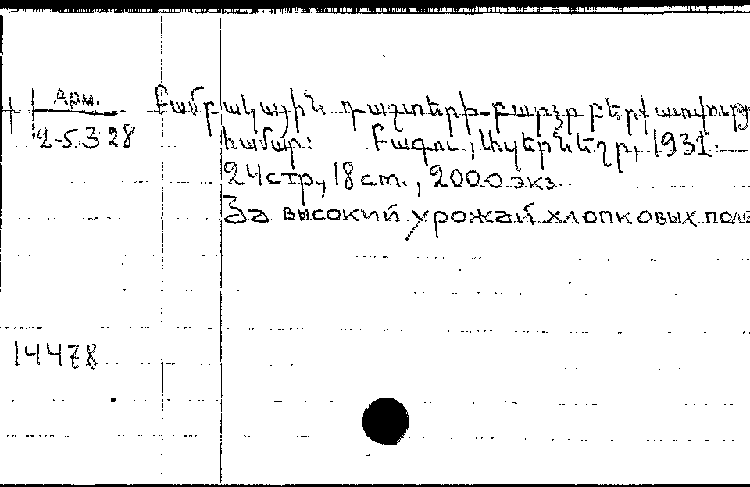 Арм.
2-5328
Բամբակային դաշտերի բարձր բերքատվության
համար: Բագու, Ազերնեշր, 1931.
24 стр., 18 см., 2000 экз.
За высокий урожай хлопковых поле
14478